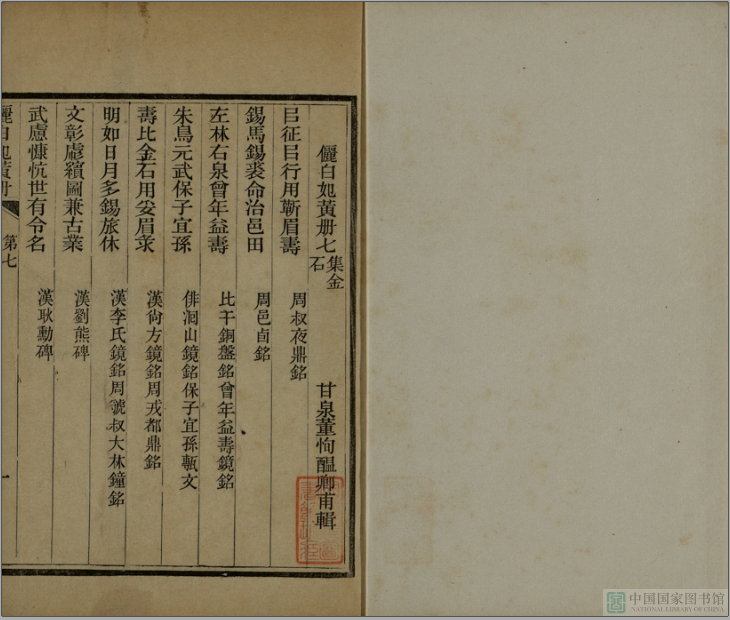 儷白妃黃册七集金石
甘泉董恂醞卿甫輯
㠯征㠯行用蘄眉壽 周叔夜鼎銘
錫馬錫裘命治邑田 周邑卣銘
左林右泉曾年益壽 比干銅盤銘曾年益壽鏡銘
朱鳥元武保子宜孫 俳洄山鏡銘保子宜孫甎文
壽比金石用妥眉彔 漢尙方鏡銘周戎都鼎銘
明如日月多錫旅休 漢李氏鏡銘周號叔大林鐘銘
文彰彪繢圖兼古業 漢劉熊碑
武慮慷忼世有令名 漢耿勳碑
儷白妃黃册 第七 一
中国国家图书馆
NATIONAL LIBRARY OF CHINA